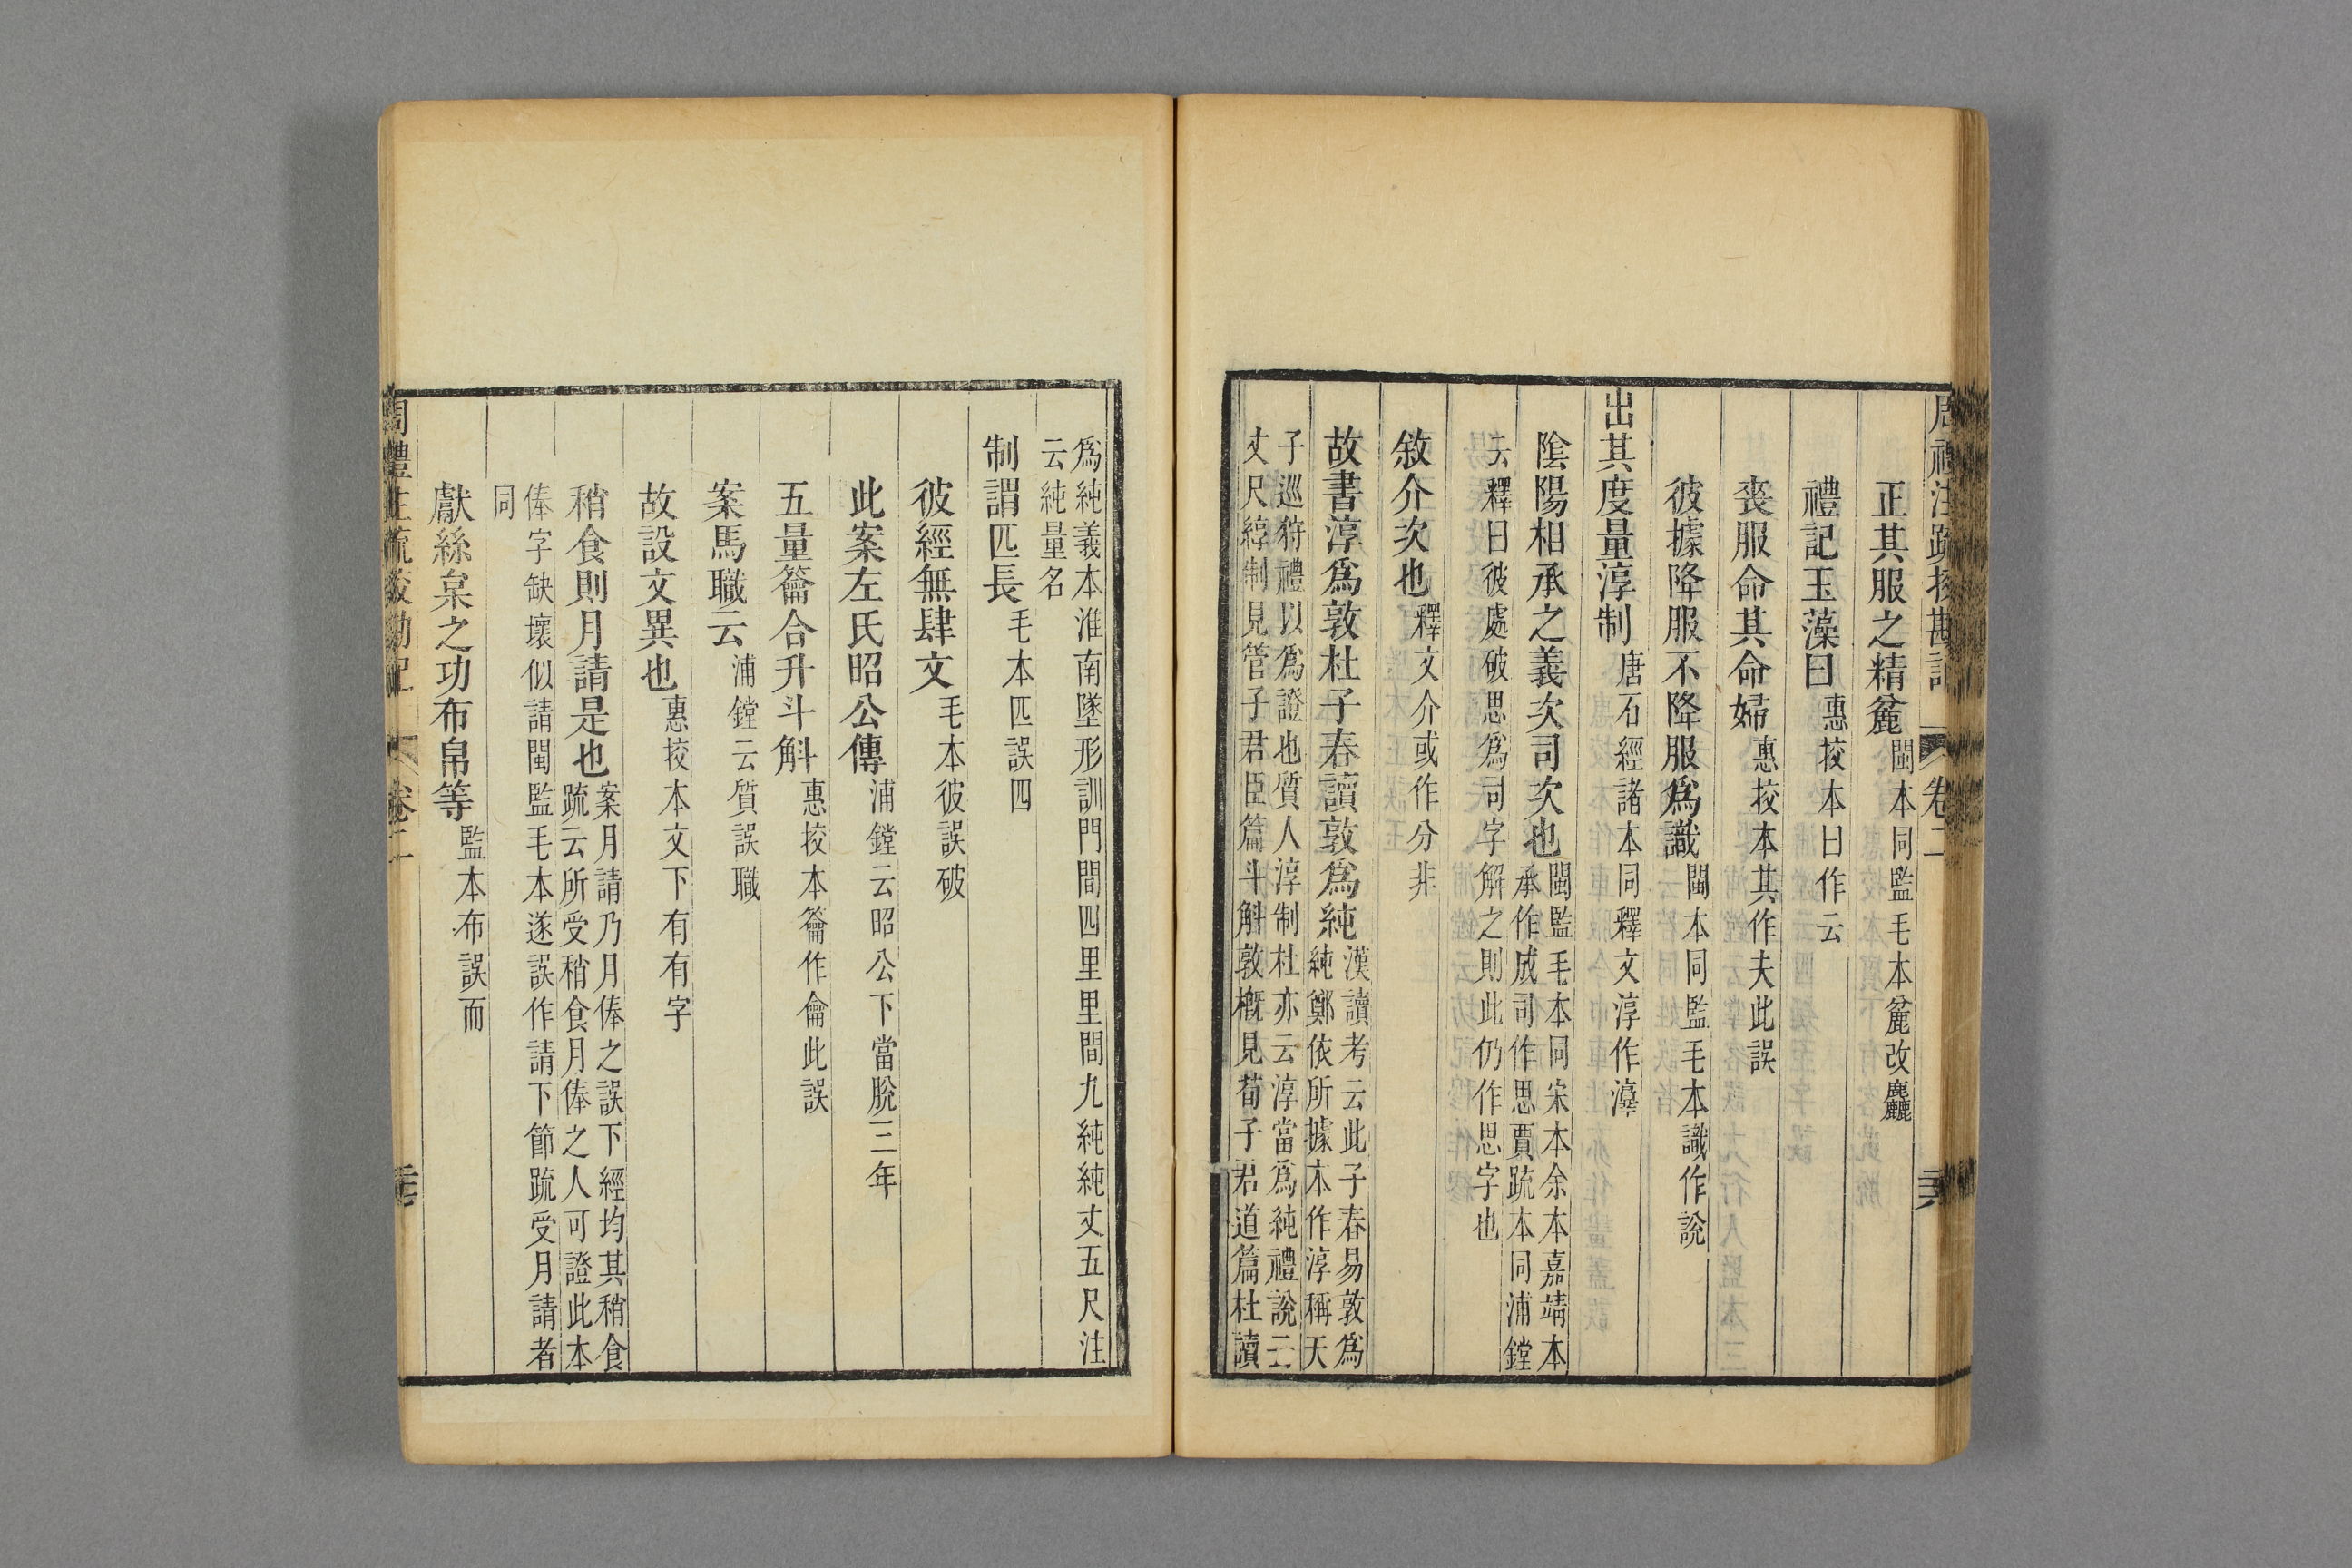 周禮注疏挍勘記 卷二 三六
正其服之精麄閩本同監毛本麄改麤
禮記玉藻曰惠挍本曰作云
喪服命其命婦惠挍本其作夫此誤
彼據降服不降服爲識閩本同監毛本識作說
出其度量淳制唐石經諸本同釋文淳作𣽎
陰陽相承之義次司次也閩監毛本同宋本余本嘉靖本
承作成司作思賈疏本同浦鏜
云釋曰彼處破思爲司字解之則此仍作思字也
敘介次也釋文介或作分非
故書淳爲敦杜子春讀敦爲純漢讀考云此子春易敦爲
純鄭依所據本作淳稱天
子巡狩禮以爲證也質人淳制杜亦云淳當爲純禮說云
丈尺綧制見管子君臣篇斗斛敦槪見荀子君道篇杜讀
爲純義本淮南墬形訓門間四里里間九純純丈五尺注
云純量名
制謂匹長毛本匹誤四
彼經無肆文毛本彼誤破
此案左氏昭公傳浦鏜云昭公下當脫三年
五量籥合升斗斛惠挍本籥作龠此誤
案馬職云浦鏜云質誤職
故設文異也惠挍本文下有有字
稍食則月請是也案月請乃月俸之誤下經均其稍食
疏云所受稍食月俸之人可證此本
俸字缺壞似請閩監毛本遂誤作請下節疏受月請者
同
獻絲枲之功布帛等監本布誤而
周禮注疏挍勘記 卷二